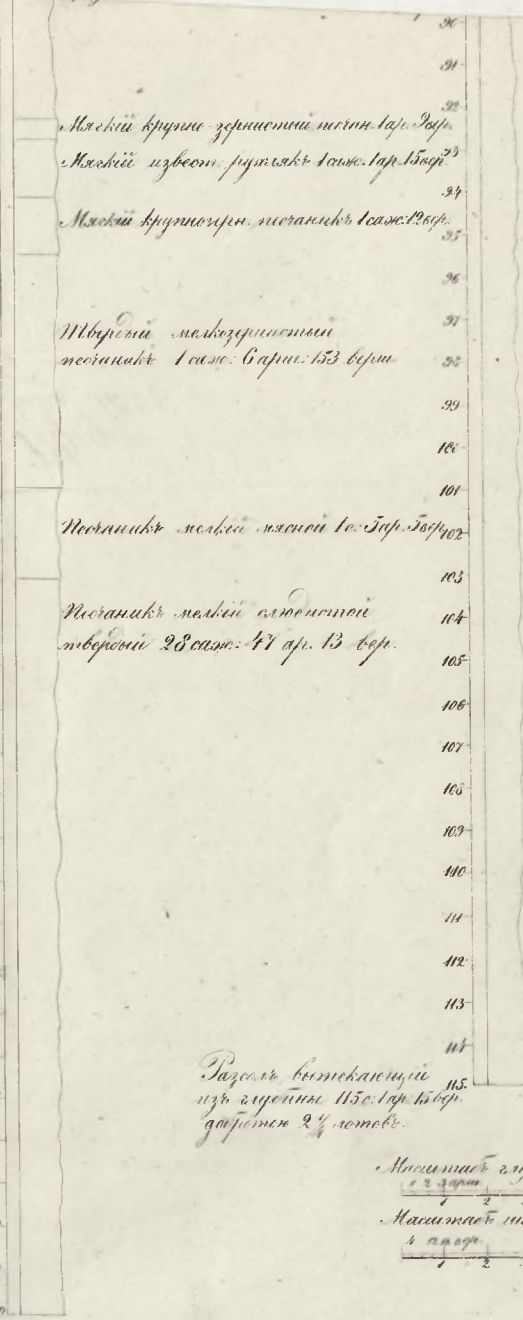 90
91
92
Мягкій крупно-зернистый песчан. 1ар. 9вер.
Мягкій извест. рухлякъ 1саж. 1ар. 15вер.
93
94
Мягкій крупнозерн. песчаникъ 1саж: 12вер.
95
96
97
Твердый мелкозернистый
песчаникъ 1 саж: 6 арш: 153 верш
98
99
100
101
Песчаникъ мелкій мясной 1с. 5ар. 5вер.
102
103
Песчаникъ мелкій слюдистой
104
твердый 28 саж: 47 ар. 13 вер.
105
106
107
108
109
110
111
112
113
114
Разсолъ вытекающій
115
изъ глубины 115с: 1ар 15вер.
лотовъ.
Масштабъ
1 2
Масштабъ
1 2